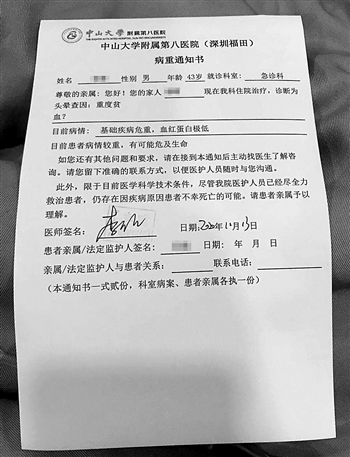 中山大学附属第八医院
中山大学附属第八医院（深圳福田）
病重通知书
姓名 性别 男 年龄 43岁 就诊科室： 急诊科
尊敬的亲属：您好！您的家人 现在我科住院治疗，诊断为
头晕查因：重度贫
血？
目前病情： 基础疾病危重，血红蛋白极低
目前患者病情较重，有可能危及生命
如您还有其他问题和要求，请在接到本通知后主动找医生了解咨
询。请您留下准确的联系方式，以便医护人员随时与您沟通。
此外，限于目前医学科学技术条件，尽管我院医护人员已经尽全力
救治患者，仍存在因疾病原因患者不幸死亡的可能。请患者亲属予以
理解。
医师签名： 日期：2020年11月13日
患者亲属/法定监护人签名： 日期： 年 月 日
亲属/法定监护人与患者关系： 联系电话：
（本通知书一式贰份，科室病案、患者亲属各执一份）